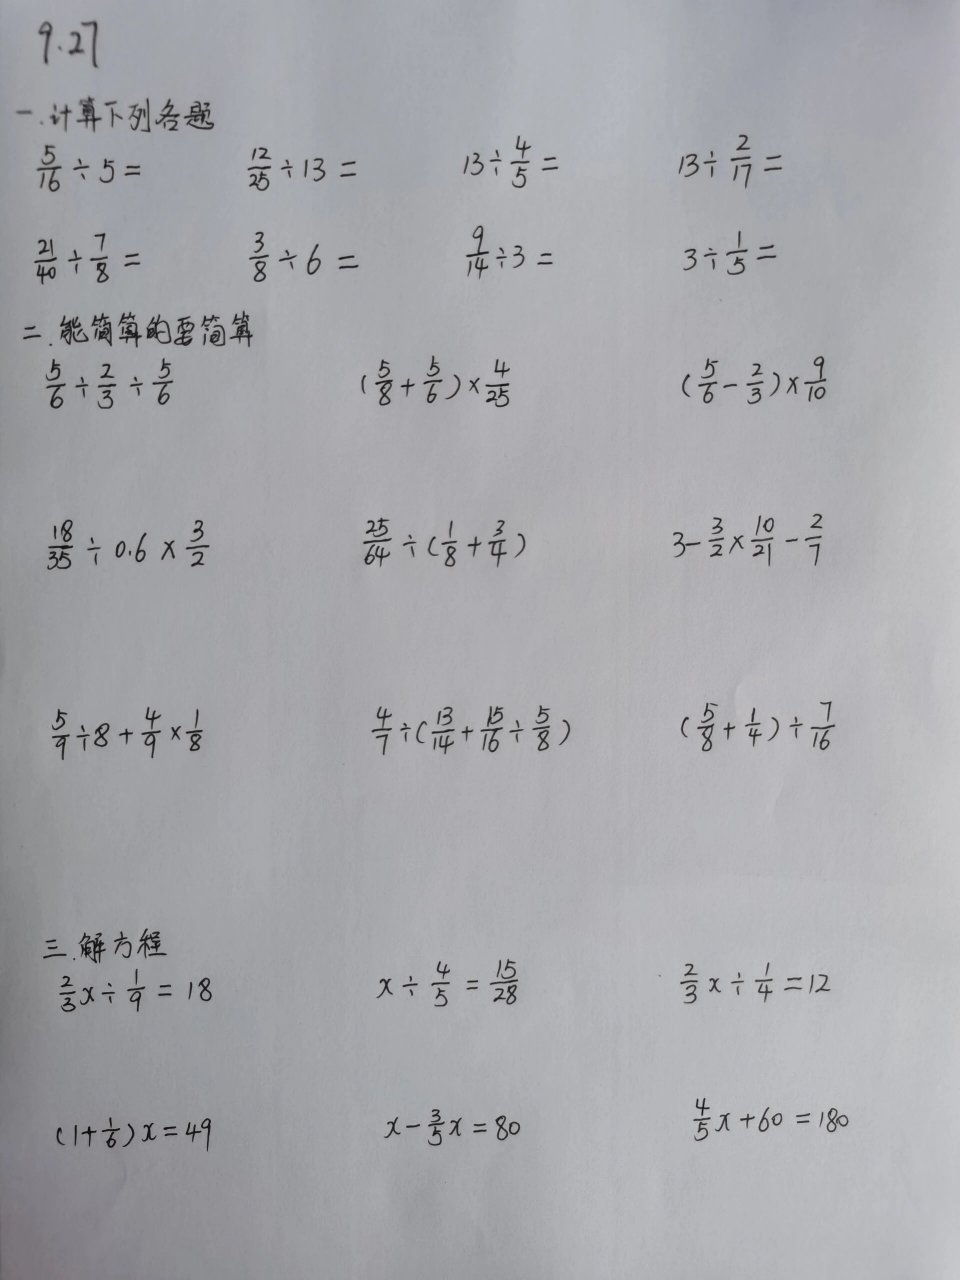 9.27
一.计算下列各题
5/16÷5= 12/25÷13= 13÷4/5= 13÷2/17=
21/40÷7/8= 3/8÷6= 9/14÷3= 3÷1/5=
二.能简算的要简算
5/6÷2/3÷5/6 (5/8+5/6)×4/25 (5/6-2/3)×9/10
18/35÷0.6×3/2 25/64÷(1/8+3/4) 3-3/2×10/21-2/7
5/9÷8+4/9×1/8 4/7÷(13/14+15/16÷5/8) (5/8+1/4)÷7/16
三.解方程
2/3x÷1/9=18 x÷4/5=15/28 2/3x÷1/4=12
(1+1/6)x=49 x-3/5x=80 4/5x+60=180